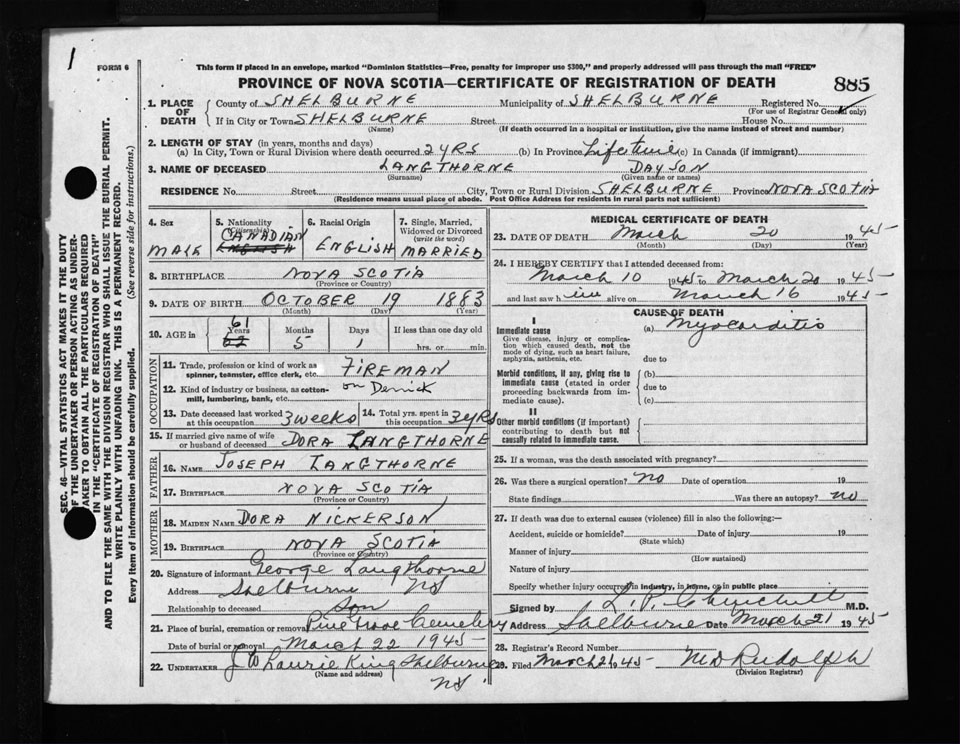 1
FORM 6
This form if placed in an envelope, marked "Dominion Statistics—Free, penalty for improper use $300," and properly addressed will pass through the mail "FREE"
PROVINCE OF NOVA SCOTIA—CERTIFICATE OF REGISTRATION OF DEATH
885
SEC. 46—VITAL STATISTICS ACT MAKES IT THE DUTY
OF THE UNDERTAKER OR PERSON ACTING AS UNDER-
TAKER TO OBTAIN ALL THE PARTICULARS REQUIRED
IN THE "CERTIFICATE OF REGISTRATION OF DEATH"
AND TO FILE THE SAME WITH THE DIVISION REGISTRAR WHO SHALL ISSUE THE BURIAL PERMIT.
WRITE PLAINLY WITH UNFADING INK. THIS IS A PERMANENT RECORD.
Every item of information should be carefully supplied. (See reverse side for instructions.)
1. PLACE OF DEATH County of SHELBURNE Municipality of SHELBURNE Registered No.
(For use of Registrar General only)
If in City or Town SHELBURNE Street House No.
(Name) (If death occurred in a hospital or institution, give the name instead of street and number)
2. LENGTH OF STAY (in years, months and days)
(a) In City, Town or Rural Division where death occurred 2 YRS (b) In Province Lifetime (c) In Canada (if immigrant)
3. NAME OF DECEASED LANGTHORNE DAYSON
(Surname) (Given name or names)
RESIDENCE No. Street City, Town or Rural Division SHELBURNE Province NOVA SCOTIA
(Residence means usual place of abode. Post Office Address for residents in rural parts not sufficient)
4. Sex MALE
5. Nationality (Citizenship) CANADIAN ENGLISH
6. Racial Origin ENGLISH
7. Single, Married, Widowed or Divorced (write the word) MARRIED
8. BIRTHPLACE NOVA SCOTIA
(Province or Country)
9. DATE OF BIRTH OCTOBER 19 1883
(Month) (Day) (Year)
10. AGE in 61 Years 62 Months 5 Days 1 If less than one day old hrs. or min.
OCCUPATION
11. Trade, profession or kind of work as spinner, teamster, office clerk, etc. FIREMAN
12. Kind of industry or business, as cotton-mill, lumbering, bank, etc. on Derrick
13. Date deceased last worked at this occupation 3 weeks 14. Total yrs. spent in this occupation 3 YRS
15. If married give name of wife or husband of deceased DORA LANGTHORNE
FATHER
16. NAME JOSEPH LANGTHORNE
17. BIRTHPLACE NOVA SCOTIA
(Province or Country)
MOTHER
18. MAIDEN NAME DORA NICKERSON
19. BIRTHPLACE NOVA SCOTIA
(Province or Country)
20. Signature of informant George Langthorne
Address Shelburne NS
Relationship to deceased Son
21. Place of burial, cremation or removal Pine Grove Cemetery
Date of burial or removal March 22 1945
22. UNDERTAKER J W Laurie King Shelburne
(Name and address) NS.
MEDICAL CERTIFICATE OF DEATH
23. DATE OF DEATH March 20 1945
(Month) (Day) (Year)
24. I HEREBY CERTIFY that I attended deceased from:
March 10 1945 to March 20 1945
and last saw him alive on March 16 1945
CAUSE OF DEATH
I
Immediate cause (a) Myocarditis
Give disease, injury or complication which caused death, not the mode of dying, such as heart failure, asphyxia, asthenia, etc. due to
Morbid conditions, if any, giving rise to immediate cause (stated in order proceeding backwards from immediate cause). (b)
due to
(c)
II
Other morbid conditions (if important) contributing to death but not causally related to immediate cause.
25. If a woman, was the death associated with pregnancy?
26. Was there a surgical operation? no Date of operation 19
State findings Was there an autopsy? no
27. If death was due to external causes (violence) fill in also the following:—
Accident, suicide or homicide? Date of injury 19
(State which)
Manner of injury
(How sustained)
Nature of injury
Specify whether injury occurred in industry, in home, or in public place
Signed by L. P. Churchill M.D.
Address Shelburne Date March 21 1945
28. Registrar's Record Number
29. Filed March 21 1945 Rudolph
(Division Registrar)